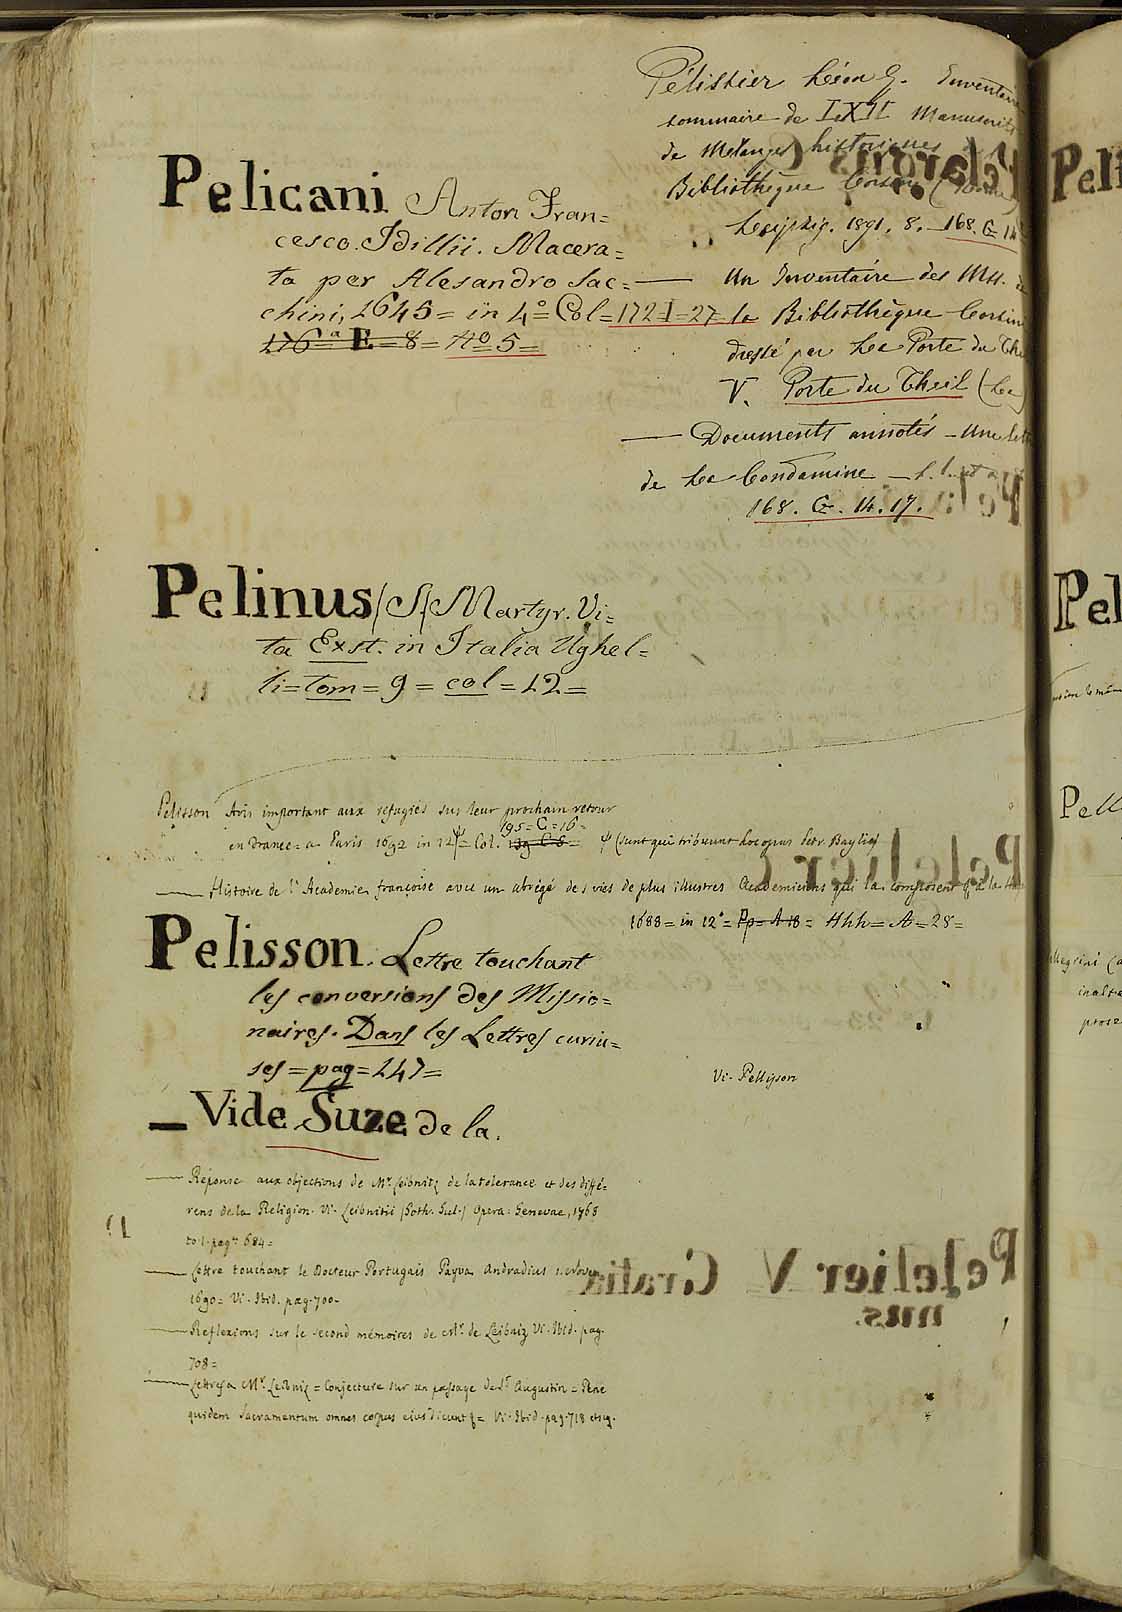 Pélissier Léon G. Inventaire
sommaire de LXII Manuscrits
de Mélanges historiques
Bibliothèque Corsini
Leipzig. 1891. 8. — 168. G. 14
— Un Inventaire des Mss. de
la Bibliothèque Corsini
dressé par La Porte du Theil
V. Porte du Theil (La)
— Documents annotés — Une lettre
de La Condamine —
168. G. 14. 17.
Pelicani Anton Fran=
cesco. Idillii. Macera=
ta per Alesandro Sac=
chini, 1645 = in 4° = Col = 172-I-27
176 = a E = 8 = No 5 =
Pelinus (S) Martyr. Vi=
ta Exst. in Italia Ughel=
li = tom = 9 = col = 12 =
Pelisson Avis important aux refugiés sur leur prochain retour
en France = a Paris 1692 in 12 ψ = Col. 139 C 6 = 195 = C = 16 = ψ (sunt qui tribuunt hoc opus Petr. Baylio)
— Histoire de l'Academie françoise avec un abrégé des vies de plus illustres Academiciens qui la composent à la
1688 = in 12° = Pp = A 18 = Hhh = A = 28 =
Pelisson. Lettre touchant
les conversions des Missio=
naires. Dans les Lettres curiu=
ses = pag = 247 =
Vi. Pellisson
— Vide Suze de la.
— Réponse aux objections de Mr. Leibnitz de la tolerance et des diffé=
rens de la Religion. Vi. Leibnitii (Goth. Gul.) Opera: Genevae, 1768
to. 1. pag. 684 =
— Lettre touchant le Docteur Portugais Payva Andradius
1690 = Vi. Ibid. pag. 700 -
— Reflexions sur le second mémoires de Mr. de Leibniz Vi. Ibid. pag.
708 =
— Lettres a Mr. Leibniz = Conjecture sur un passage de St Augustin = Pene
quidem Sacramentum omnes corpus eius dicunt = Vi. Ibid. pag. 718 et seq.